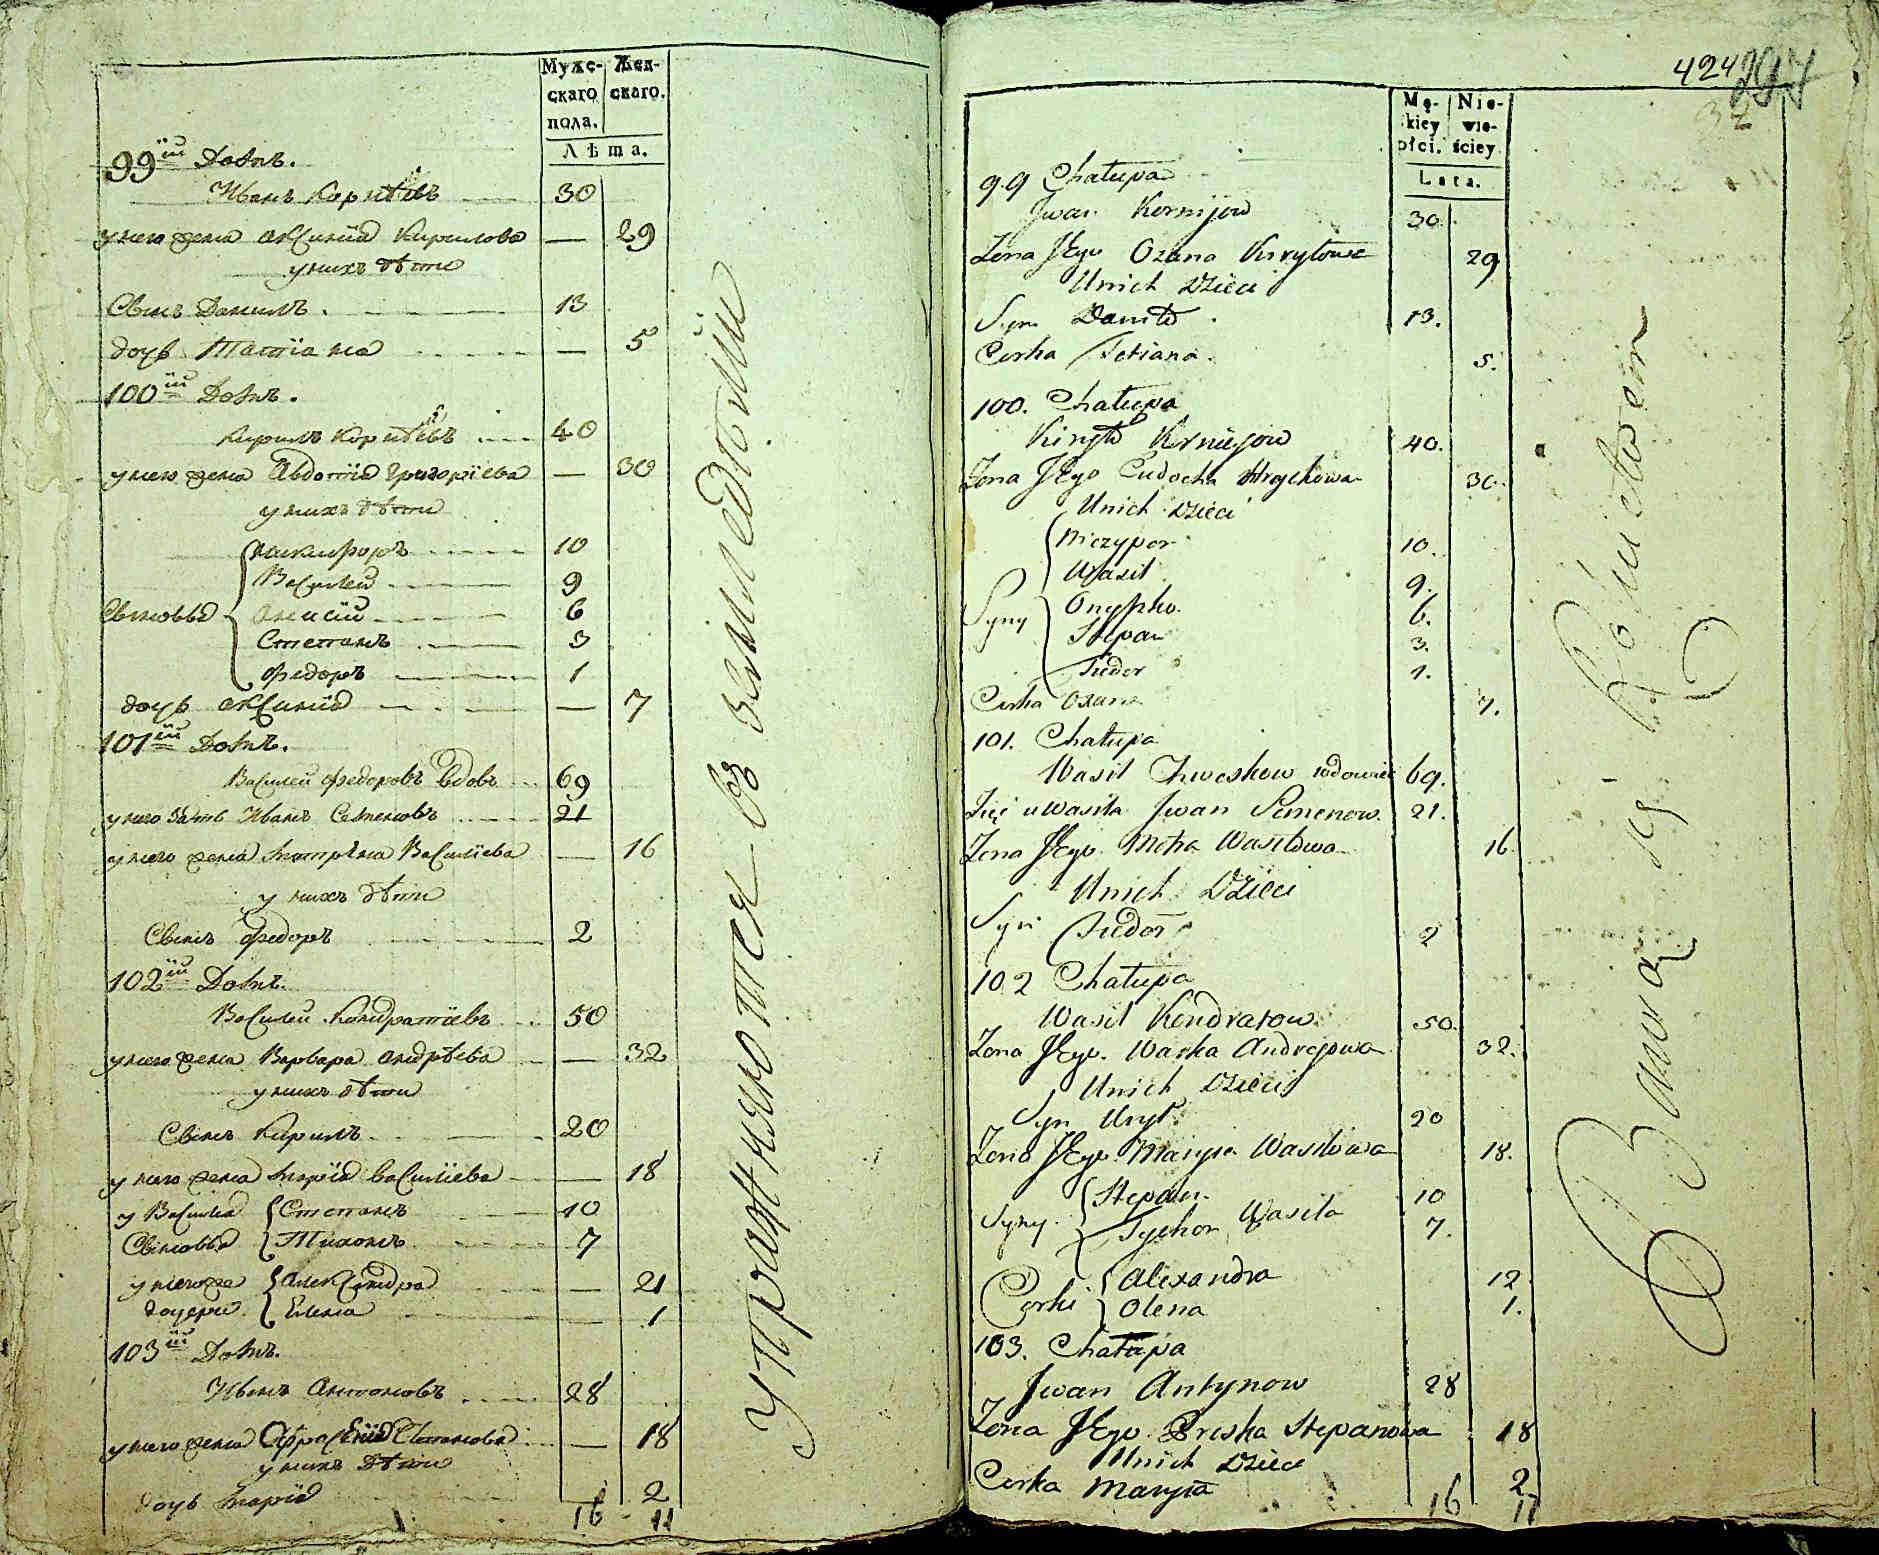 Мужескаго пола. Женскаго.
Лѣта.
99ій Домъ.
Иванъ Корнѣевъ 30
у него жена Аксинія Кирилова — 29
у нихъ дѣти
Сынъ Данилъ. 13
дочь Татіана — 5
100ій Домъ.
Кирилъ Корнѣевъ 40
у него жена Авдотія Григоріева — 30
у нихъ дѣти
Никифоръ 10
Василей 9
Сыновья Анисій 6
Степанъ 3
Федоръ 1
дочь Аксинія — 7
101ій Домъ.
Василей Федоровъ вдовъ 69
у него зять Иванъ Семеновъ 21
у него жена Матрѣна Василіева — 16
у нихъ дѣти
Сынъ Федоръ 2
102ій Домъ.
Василей Кондратіевъ 50
у него жена Варвара Андрѣева — 32
у нихъ дѣти
Сынъ Кирилъ 20
у него жена Марія Василіева — 18
у Василія Степанъ 10
Сыновья Тихонъ 7
у него же Александра — 21
дочери Елена — 1
103ій Домъ.
Иванъ Антоновъ 28
у него жена Афросинія Степанова — 18
у нихъ дѣти
дочь Марія 2
16 11
упражняются въ земледѣліи
424
297
Mę-kiey płci. Nie-wie-ściey
Lata.
99 Chałupa
Jwan Kornijow 30.
Żona JEgo Oxana Kiryłowa 29
Unich Dzieci
Syn Daniło 13.
Corka Tetiana. 5.
100. Chałupa
Kiryło Korniejow 40.
Żona JEgo Eudocha Hrychowa 30.
Unich Dzieci
Niczypor 10.
Wasil 9.
Syny Onypko. 6.
Stepan 3.
Fiedor 1.
Corka Oxana 7.
101. Chałupa
Wasil wdowiec 69.
Zięć u Wasila Jwan Semenow. 21.
Żona JEgo Motra Wasilowa 16
Unich Dzieci
Syn Fiedor 2
102 Chałupa
Wasil Kondratow. 50.
Żona JEgo. Warka Andrejowa 32.
Unich Dzieci
Syn 20
Żona JEgo. Marya Wasilowa 18.
Stepan 10
Syny. Tychon Wasila 7.
Corki Alexandra 12
Olena 1.
103. Chałupa
Jwan Antynow 28
Żona JEgo. Priska Stepanowa 18
Unich Dzieci
Corka Marysia 2
16 11
Bawią się Rolnictwem